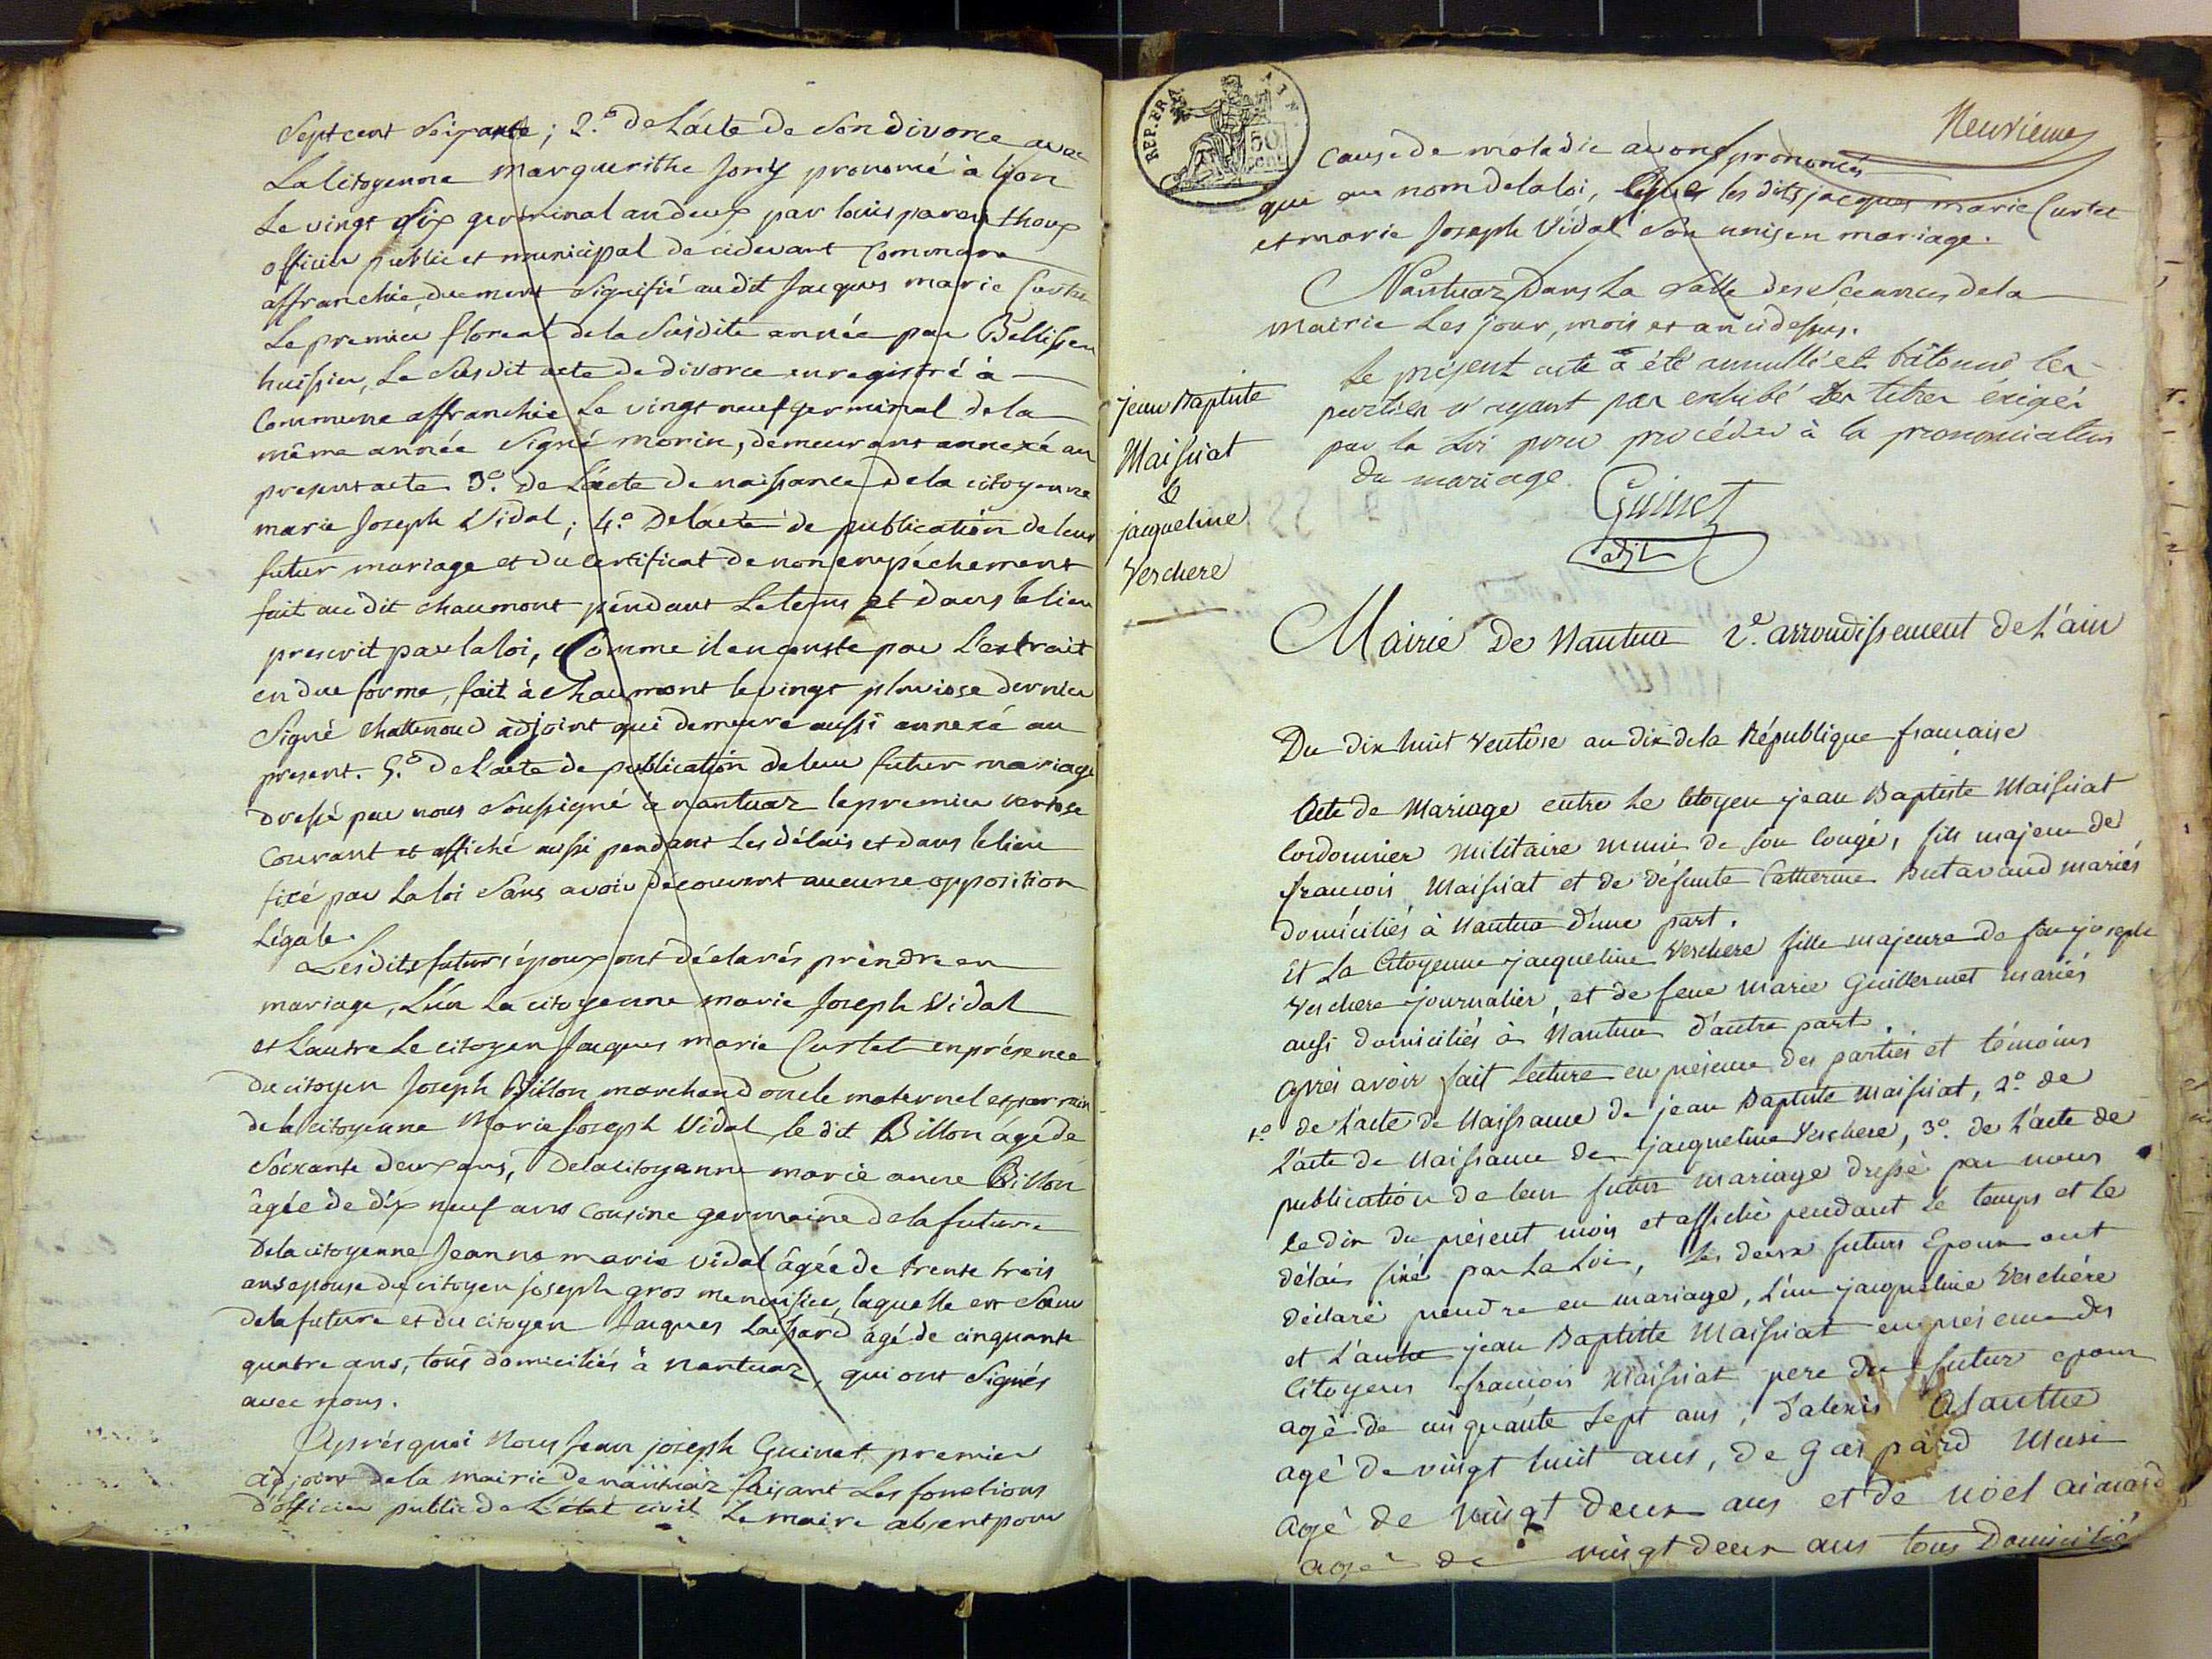 Septcent Seipante; 2.° de L'acte de Son divorce avec
La Citoyenne Marguerithe Jony prononcé à lion
Le vingt Six germinal an deux par louis
officier public et municipal de cidevant Commune
affranchie, duement Signifié au dit Jacques marie Curtet
Le premier floreal de la Susdite année par Bellissen
huissier, Le Susdit acte de divorce enregistré à
Commune affranchie Le vingt neuf germinal de la
même année Signé morin, demeurant annexé au
present acte 3.° de L'acte de naissance de la citoyenne
marie Joseph Vidal; 4.° De l'acte de publication de leur
futur mariage et du Certificat de non empêchement
fait au dit chaumont pendant Le tems et dans le lieu
prescrit par la loi, Comme il en conste par L'extrait
en due forme, fait à Chaumont le vingt pluviose dernier
Signé Chattenoud adjoint qui demeure aussi annexé au
present. 5.° de L'acte de publication de leur futur mariage
dressé par nous Soussigné à nantuaz le premier ventose
Courant et affiché aussi pendant Les délais et dans le lieu
fixé par La loi Sans avoir découvert aucune opposition
Légale.
Lesdits futurs époux ont déclarés prendre en
mariage, L'un La citoyenne marie Joseph Vidal
et L'autre Le citoyen Jacques marie Curtet en présence
du citoyen Joseph Billon marchand oncle maternel et parrain
de la citoyenne Marie Joseph Vidal le dit Billon âgé de
Soixante deux ans, De la citoyenne marie anne Billon
âgée de dix neuf ans Cousine germaine de la future
De la citoyenne Jeanne marie vidal âgée de trente trois
ans epouse du citoyen joseph gros menuisier, laquelle est Soeur
de la future et du citoyen Jacques Laissard âgé de cinquante
quatre ans, tous domiciliés à nantuaz, qui ont Signés
avec nous.
Après quoi Nous Jean joseph Guinet premier
adjoint de la mairie de nantuaz faisant Les fonctions
d'officier public de L'etat civil Le maire absent pour
REP. FRA.
50
CENT.
Neuvieme
Cause de maladie avons prononcés
que au nom de la loi, que les dits jacques marie Curtet
et marie Joseph Vidal Son unis en mariage.
Nantuaz Dans La Salle des Séances de la
mairie Les jour, mois et an cidessus.
Le présent acte a été annullé et bâtonné les
parties n'ayant pas exhibé les titres éxigés
par la Loi pour procéder à la prononciation
du mariage.
Guinet
adjt
jean Baptiste
Maissiat
&
jacqueline
Verchere
Mairie de Nantua 2.e arrondissement de L'ain
Du dix huit Ventôse an dix de la République française
Acte de Mariage entre Le Citoyen jean Baptiste Maissiat
Cordonnier militaire muni de Son Congé, fils majeur de
françois Maissiat et de défunte Catherine Butavand mariés
domiciliés à Nantua d'une part.
Et La Citoyenne jacqueline Verchere fille majeure de feu joseph
Verchere journalier, et de feue Marie Guillermet mariés
aussi domiciliés à Nantua d'autre part.
après avoir fait Lecture en présence des parties et témoins
1.° de L'acte de Naissance de jean Baptiste Maissiat, 2.° de
L'acte de Naissance de jacqueline Verchere, 3.° de L'acte de
publication de leur futur mariage dressé par nous
le dix du présent mois et affiché pendant le temps et le
délai fixé par La Loi, les deux futurs Epoux ont
déclaré prendre en mariage, L'un jacqueline Verchère
et L'autre jean Baptiste Maissiat en présence des
Citoyens françois Maissiat pere du futur epoux
agé de cinquante Sept ans, d'alexis Alanthe
agé de vingt huit ans, de gaspard Musi
agé de vingt deux ans et de noël aimard
agé de vingt deux ans tous Domicilié